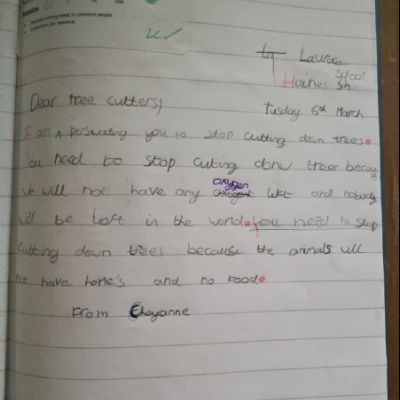 Persuasive writing needs to convince people
Laura
Haines School
Dear tree cutters,
Tusday 6th March
I am persuading you to stop cutting down trees.
You need to stop cuting donw treer becay
we will not have any oxygen left and nobody
will be left in the world. You need to stop
cutting down trees because the animals will
not have home's and no food.
From Cheyanne